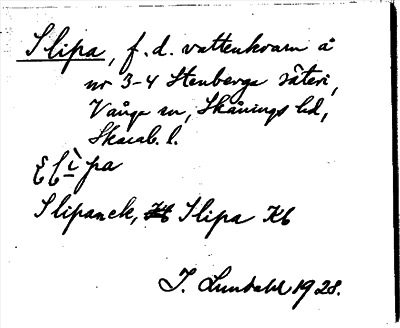 Slipa, f.d. vattenkvarn å
nr 3-4 Stenberga säteri,
Vånga sn, Skånings hd,
Skarab. l.
slìpa
Slipanek, Slipa Kb
I. Lundahl 1928.